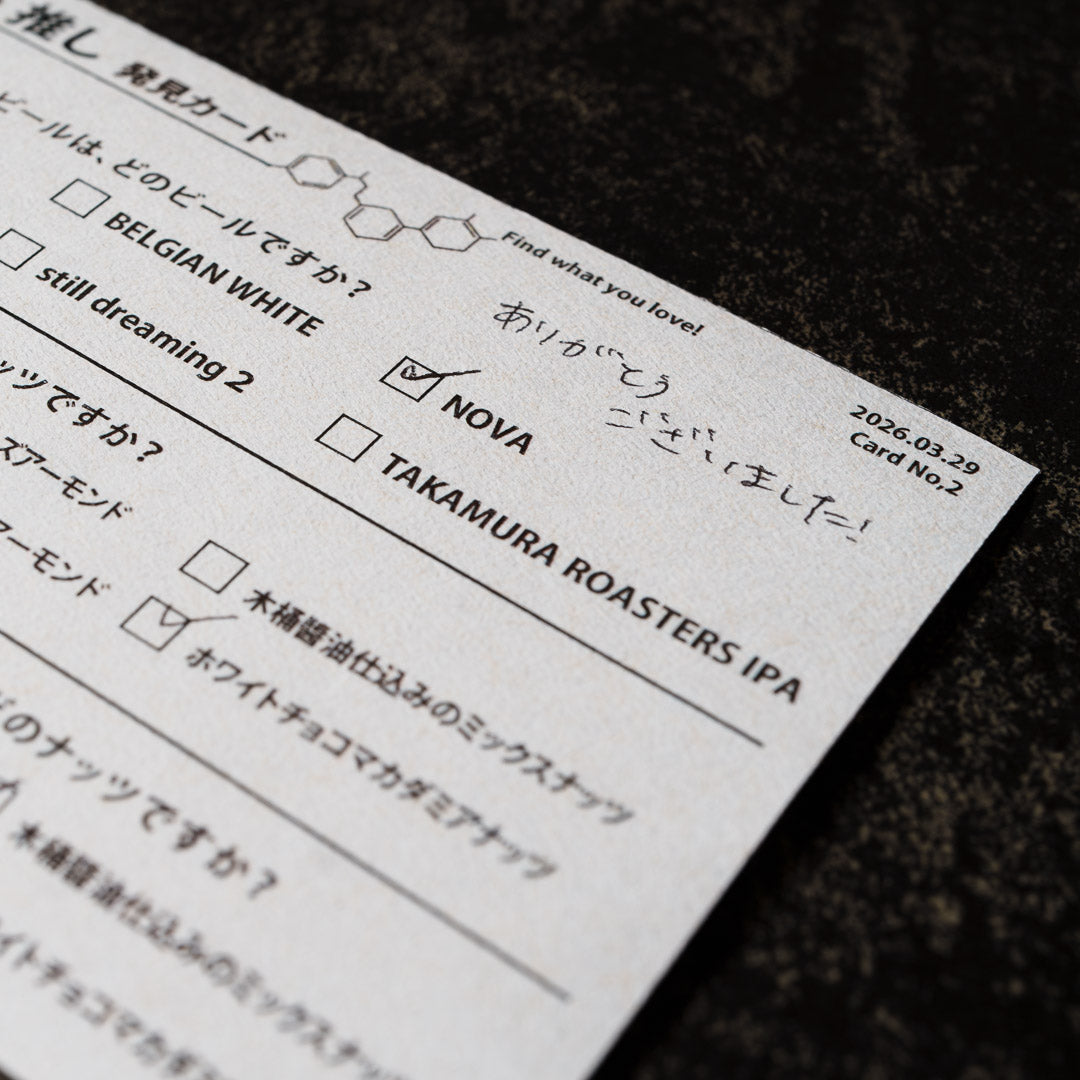 推し 発見カード
Find what you love!
2026.03.29
Card No,2
ビールは、どのビールですか?
BELGIAN WHITE
NOVA
still dreaming 2
TAKAMURA ROASTERS IPA
ありがとう
ございました!
ッツですか?
ズアーモンド
木桶醤油仕込みのミックスナッツ
アーモンド
ホワイトチョコマカダミアナッツ
のナッツですか?
木桶醤油仕込みのミックスナッツ
イトチョコマカダミ